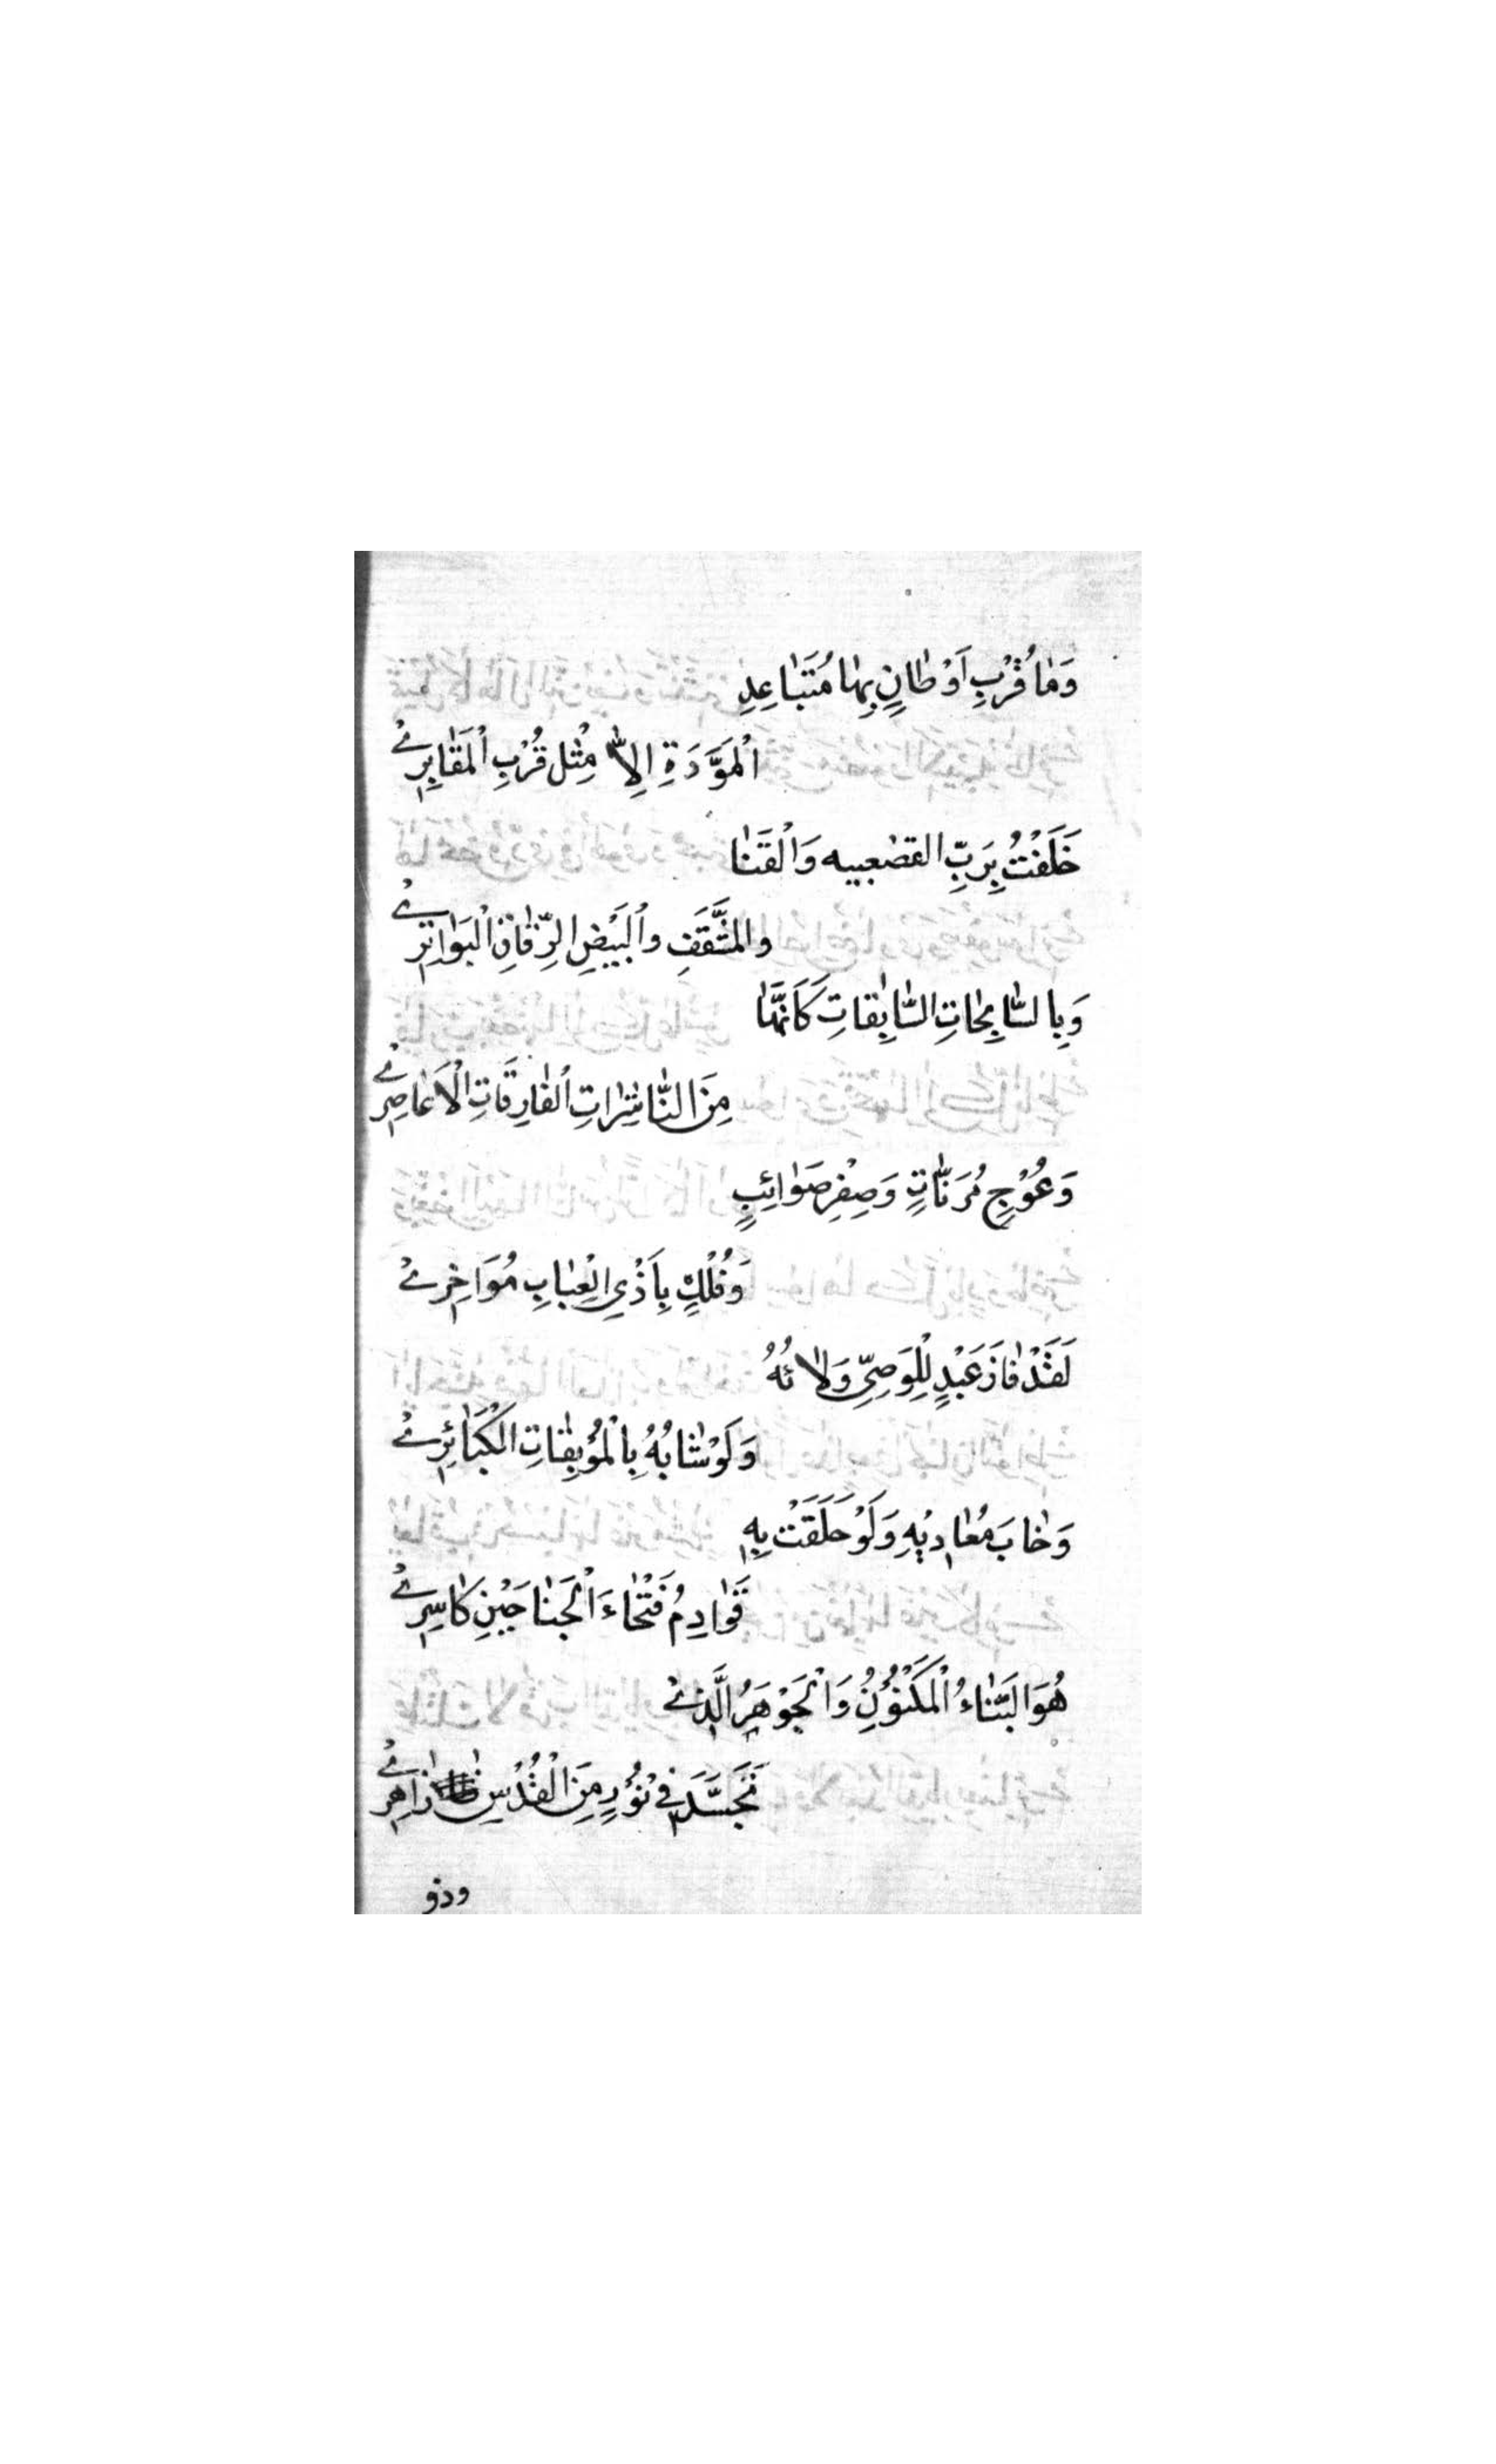 وَمٰا قُرْبِ اَوْطٰانٍ بِهٰا مُتَبٰاعِدِ
اَلْمَوَدَّةِ اِلاّٰ مِثْل قُرْبِ الْمَقٰابِرِ
حَلَفْتُ بِرَبِّ القضعبيه وَالْقَنٰا
والمُثَقَّفِ واُلبَيْضِ الرِّقٰاقِ الْبَوٰاتِرِ
وَبِالسّٰابِحٰاتِ السّٰابِقٰاتِ كَاَنَّهٰا
مِنَ النّٰاشِرٰاتِ اُلفٰارِقٰاتِ الْاَعٰاصِرِ
وَعُوْجٍ مُرَنّٰاتٍ وَصِفْرِ صَوٰائِبٍ
وَفُلْكٍ بِاَذْيِ الْعِبٰابِ مُوَاخِرِ
لَقَدْ فٰازَ عَبْدٍ لِلْوَصِيِّ وَلاٰئُهُ
وَلَوْ شٰابُهُ بِالْمُؤْبِقٰاتِ الْكَبٰائِرِ
وَخٰابَ مُعٰادِيْهِ وَلَوْ حَلَقَتْ بِهِ
قَوٰادِمُ فَتْخٰاءَ الْجَنٰاحَيْنِ كٰاسِرِ
هُوَ البَنّٰاءُ الْمَكْنُوْنُ وَالْجَوْهَرُ الَّذِىْ
تَجَسَّدَ فِىْ نُوْرٍ مِنَ الْقُدْسِ زٰاهِرِ
وذو